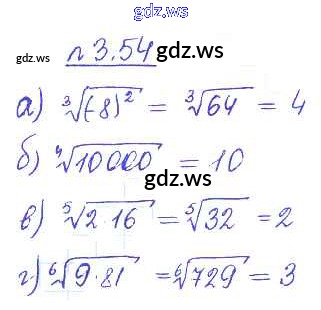 gdz.ws
gdz.ws п 3.54 gdz.ws
а) ∛(-8)² = ∛64 = 4
б) ∜10000 = 10
gdz.ws
в) ⁵√2·16 = ⁵√32 = 2
г) ⁶√9·81 = ⁶√729 = 3
gdz.ws